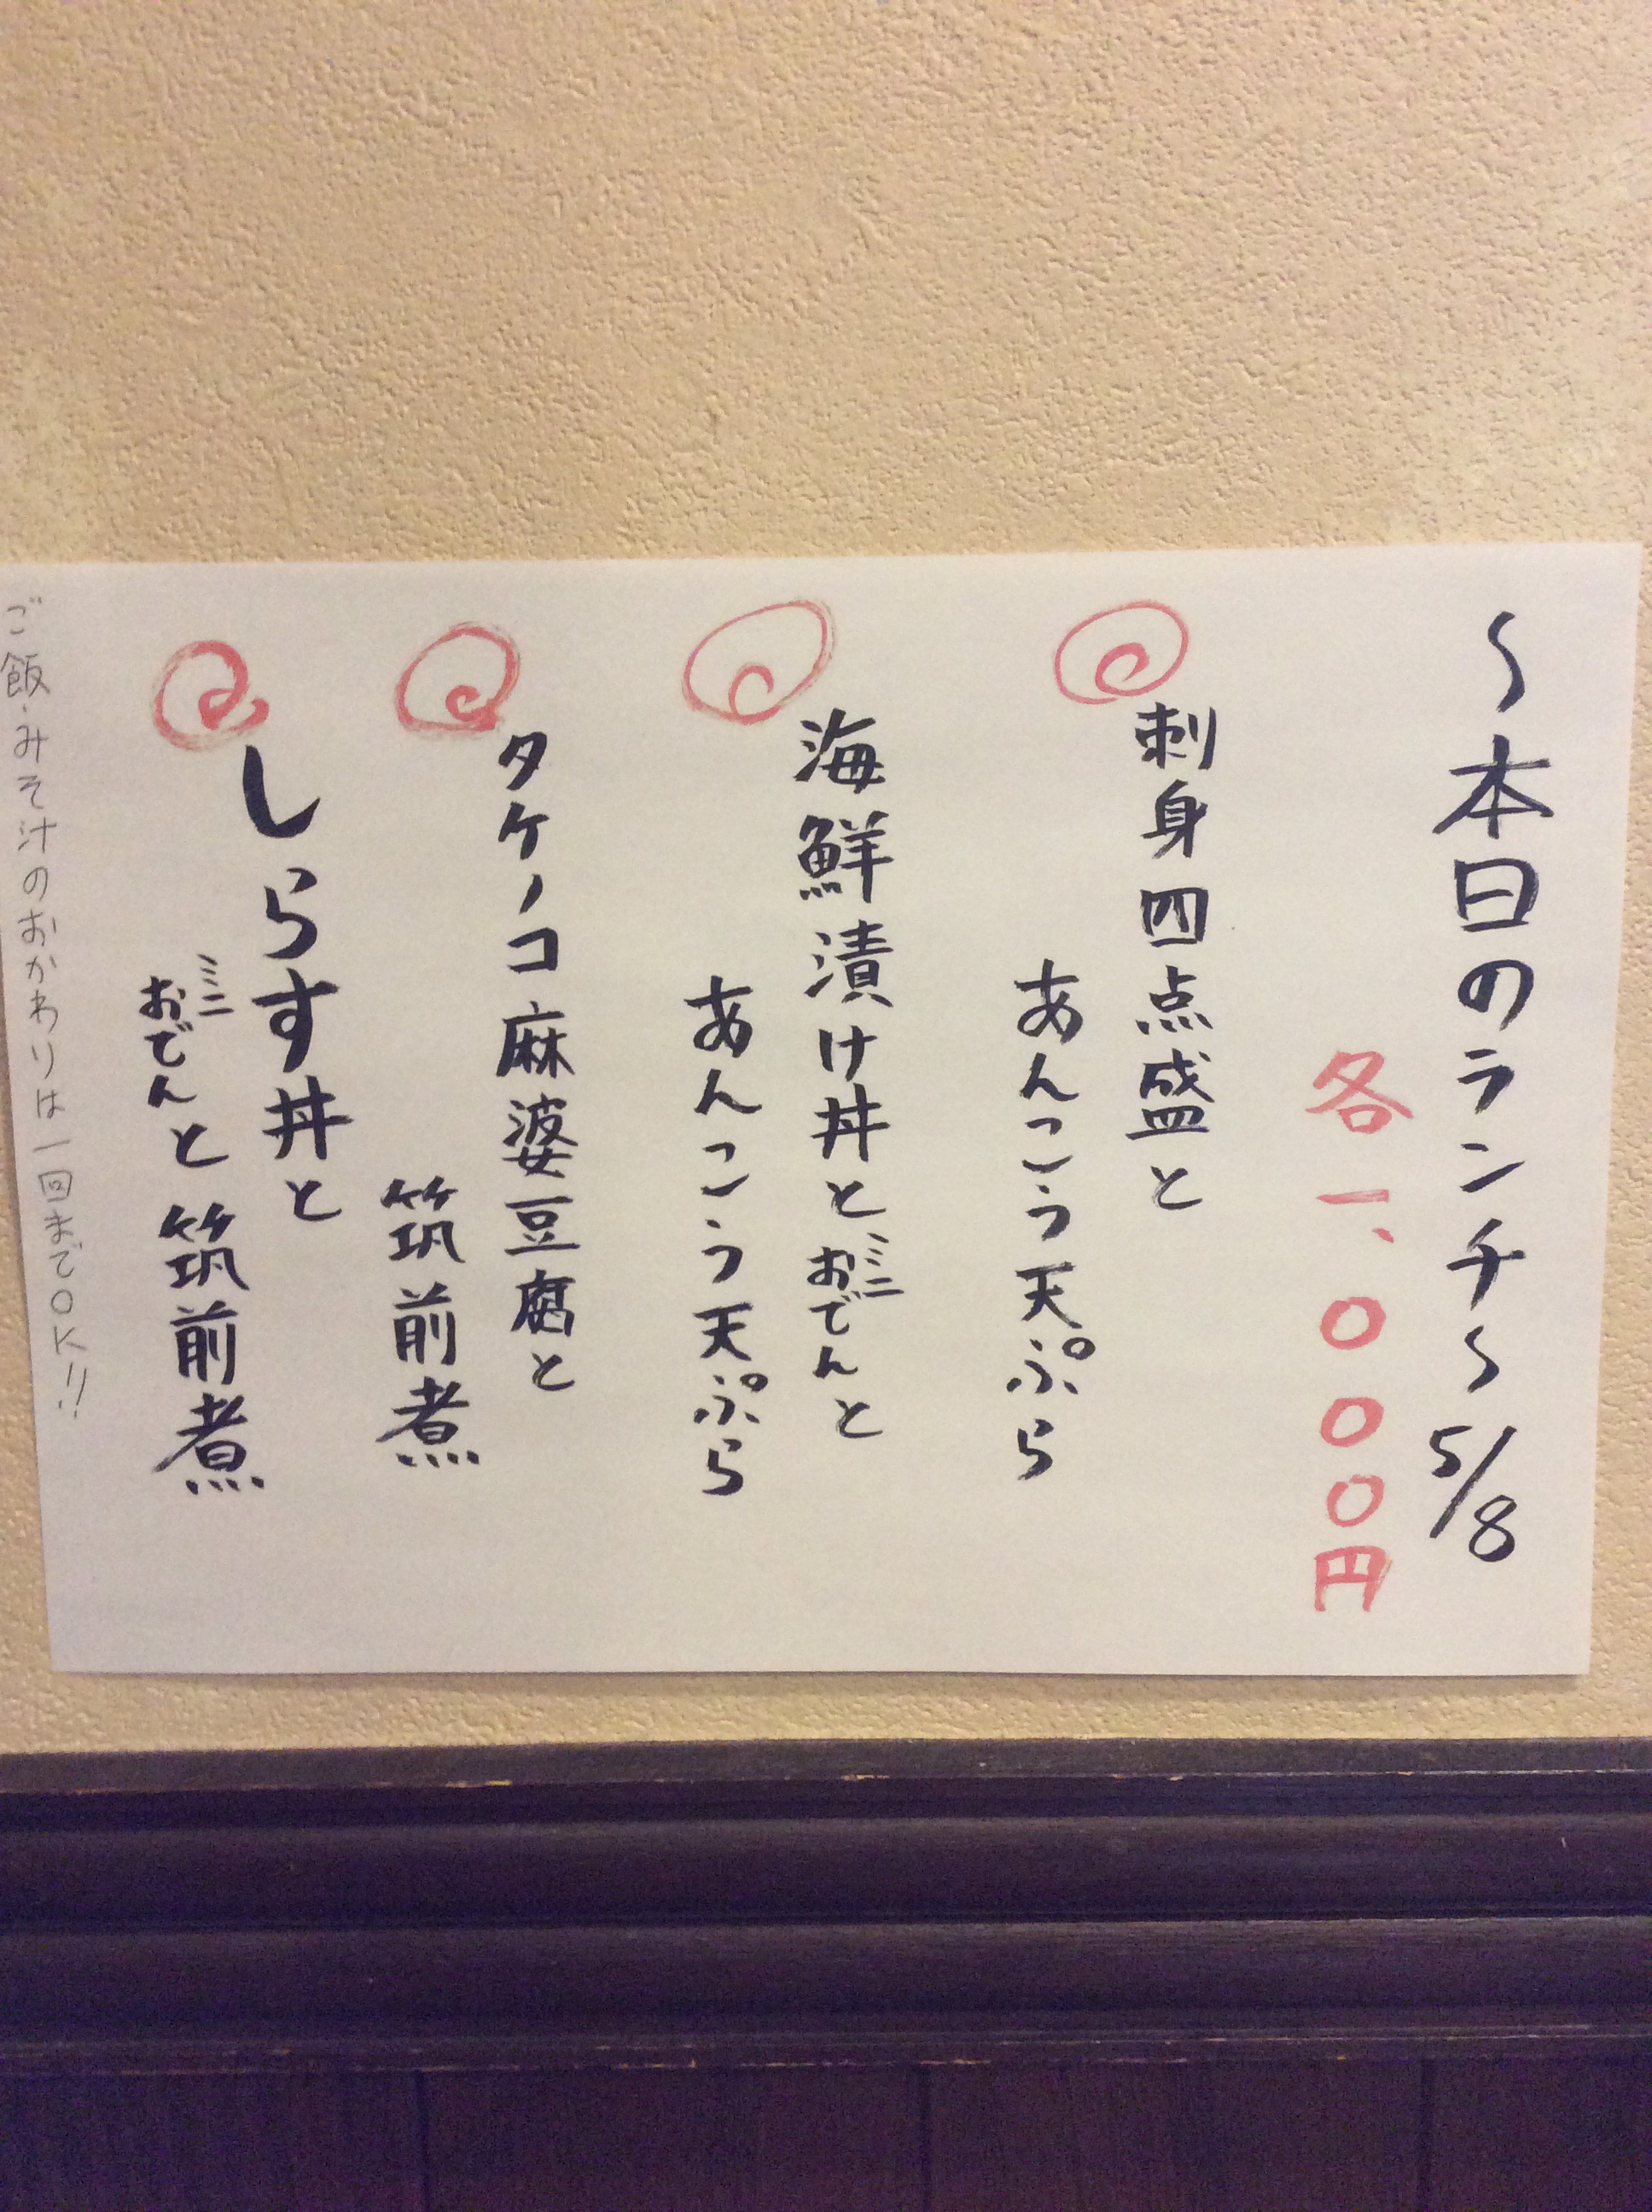 〜本日のランチ〜 5/8
各一、〇〇〇円
刺身四点盛と
あんこう天ぷら
海鮮漬け丼とミニおでんと
あんこう天ぷら
タケノコ麻婆豆腐と
筑前煮
しらす丼と
ミニおでんと筑前煮
ご飯・みそ汁のおかわりは一回までOK!!